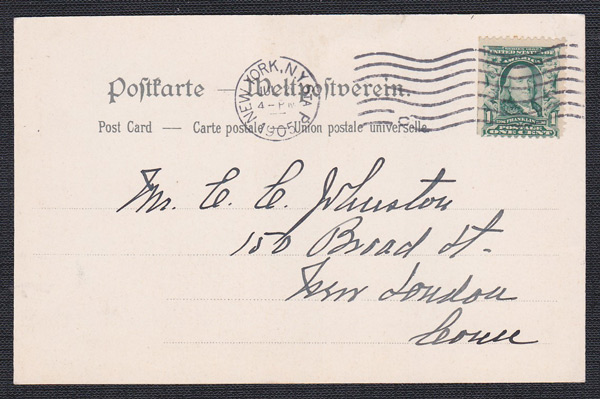 NEW YORK, N.Y. STA P
4-PM
1905
SERIES 1902
UNITED STATES OF
AMERICA
FRANKLIN
1 POSTAGE 1
ONE CENT
Postkarte — Weltpostverein.
Post Card — Carte postale — Union postale universelle.
Mr. C. C. Johnston
150 Broad St.
New London
Conn